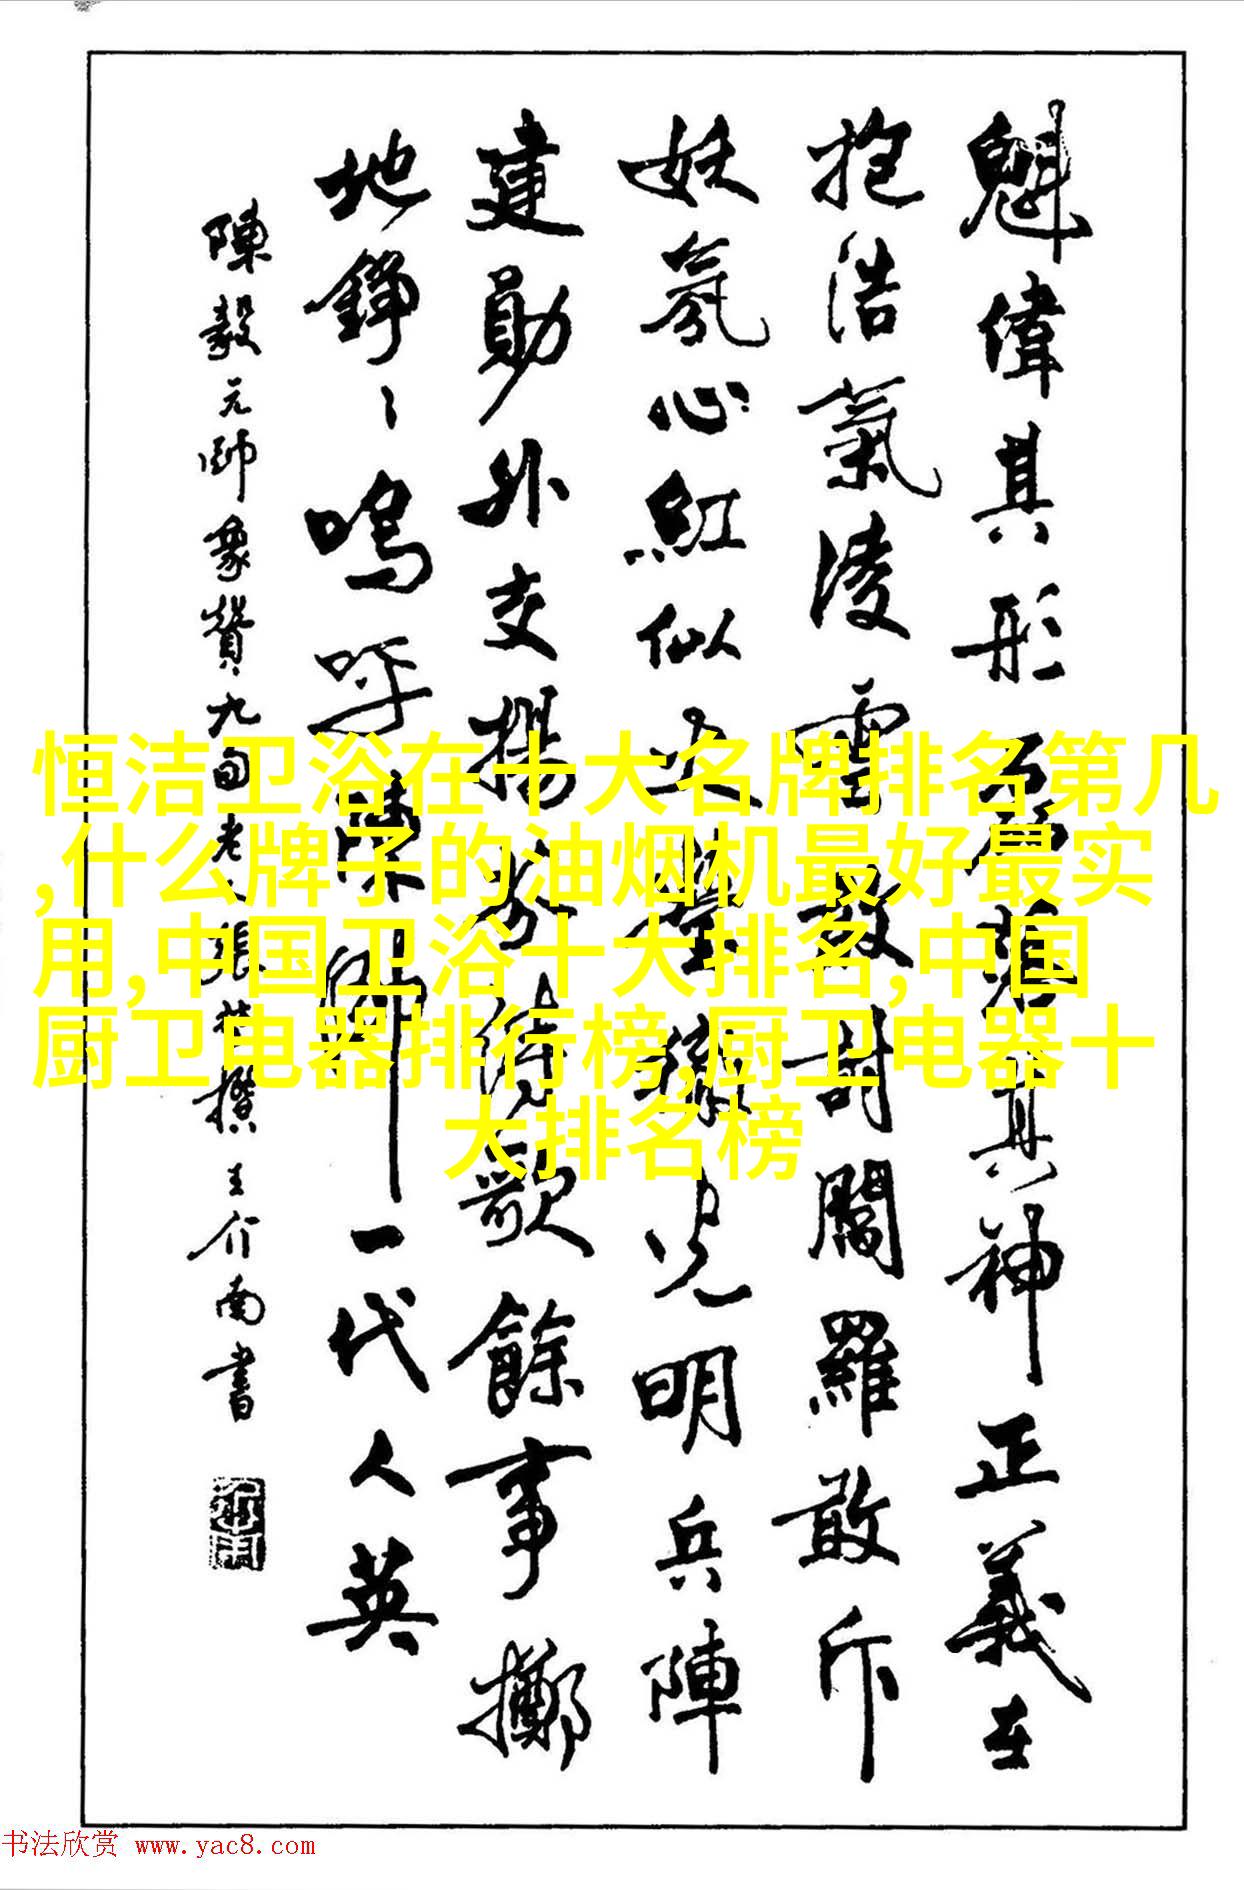 魁偉其形磊落其神正義在
抱浩氣淩雲敢討閻羅敢斥
妖氛心紅似火瑩洁光明兵陣
建勛外交揚芳詩歌餘事擲
地錚〻嗚呼陳帥一代人英
陳毅元帥象贊九旬老人張
撰王介南書
恒洁卫浴在十大名牌排名第几
,什么牌子的油烟机最好最实
用,中国卫浴十大排名,中国
厨卫电器排行榜,厨卫电器十
大排名榜
书法欣赏 www.yac8.com